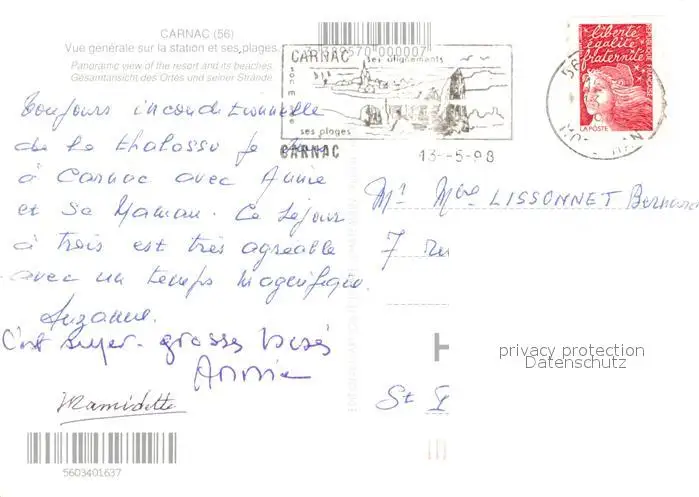 CARNAC (56)
Vue générale sur la station et ses plages.
Panoramic view of the resort and its beaches.
Gesamtansicht des Ortes und seiner Strände.
Toujours inconditionnelle
de la thalasso je
à Carnac avec Annie
et sa Maman. Ce séjour
à trois est très agréable
avec un temps magnifique.
Suzanne.
C'est super. grosses bises
Annie
Mamidette
5603401637
3 389570 000007
CARNAC ses alignements
son
ses plages
CARNAC
13-5-98
liberté
égalité
fraternité
LA POSTE
56
Mr Mme LISSONNET Bernard
7 ru
H
St
privacy protection
Datenschutz